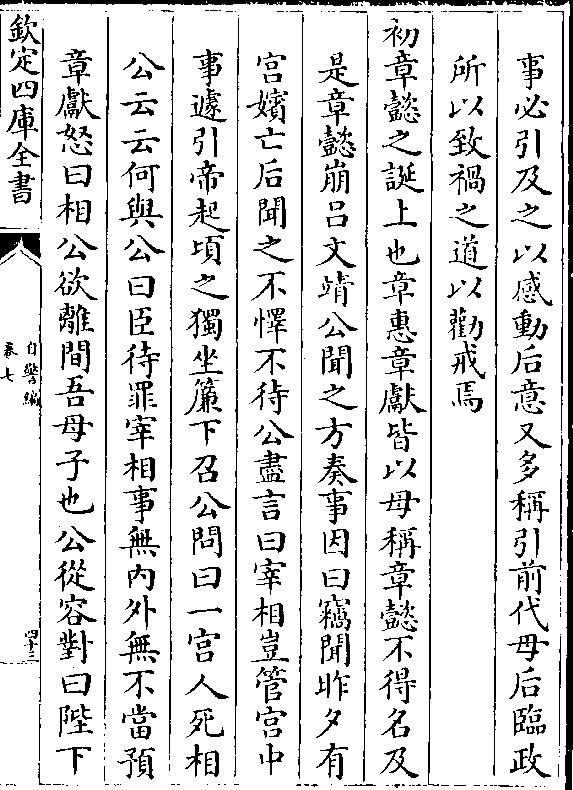 事必引及之以感動后意又多稱引前代母后臨政
所以致禍之道以勸戒焉
初章懿之誕上也章惠章獻皆以母稱章懿不得名及
是章懿崩吕文靖公聞之方奏事因曰竊聞昨夕有
宮嬪亡后聞之不懌不待公盡言曰宰相豈管宮中
事遽引帝起頃之獨坐簾下召公問曰一宮人死相
公云云何與公曰臣待罪宰相事無内外無不當預
章獻怒曰相公欲離間吾母子也公從容對曰陛下
欽定四庫全書
自警編
卷七
四十三